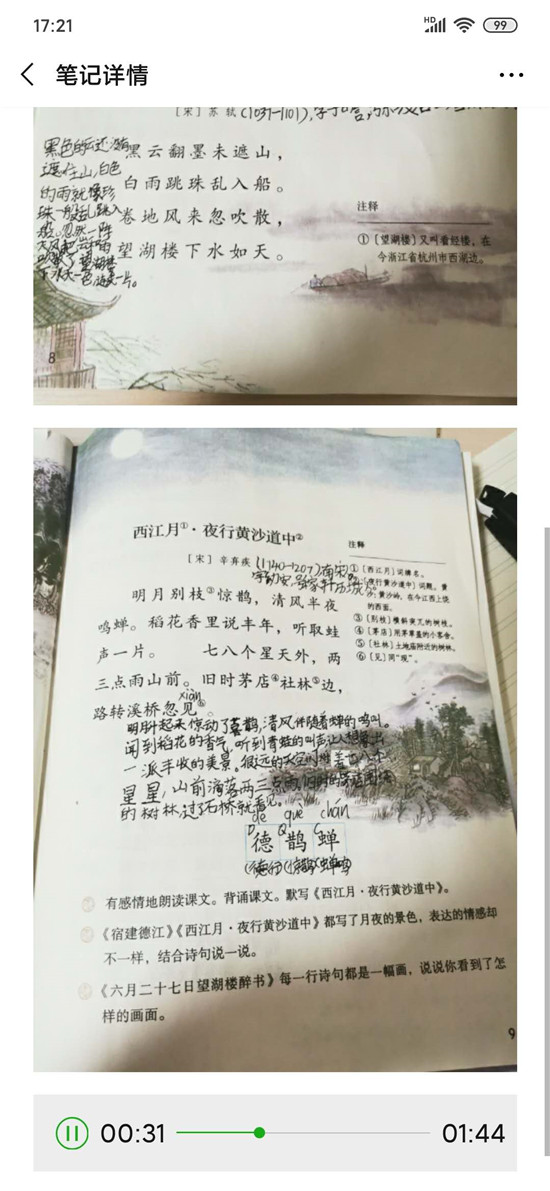 17:21
HD
99
笔记详情
[宋] 苏轼(1037-1101),字子
黑云翻墨未遮山，
白雨跳珠乱入船。
卷地风来忽吹散，
望湖楼下水如天。
黑色的云还没有
遮住山,白色
的雨就像珍
珠一般乱跳入
船。忽然一阵
注释
①〔望湖楼〕又叫看经楼，在
今浙江省杭州市西湖边。
8
西江月①·夜行黄沙道中②
[宋] 辛弃疾(1140-1207)南宋
明月别枝③惊鹊，清风半夜
鸣蝉。稻花香里说丰年，听取蛙
声一片。 七八个星天外，两
三点雨山前。旧时茅店④社林⑤边，
xiàn
路转溪桥忽见⑥。
注释
①〔西江月〕词牌名。
②〔夜行黄沙道中〕词题。黄
沙，黄沙岭，在今江西上饶
的西面。
③〔别枝〕横斜突兀的树枝。
④〔茅店〕用茅草盖的小客舍。
⑤〔社林〕土地庙附近的树林。
⑥〔见〕同“现”。
明月升起来惊动了喜鹊,清风伴随着蝉的鸣叫。
闻到稻花的香气,听到青蛙的叫声让人想象出
一派丰收的美景,很远的天空
星星,山前滴落两三点雨,旧时的茅店围绕
的树林,过了石桥就看见。
dé què chán
德鹊蝉
(德行)(惊鹊)(蝉鸣)
有感情地朗读课文。背诵课文。默写《西江月·夜行黄沙道中》。
《宿建德江》《西江月·夜行黄沙道中》都写了月夜的景色，表达的情感却
不一样，结合诗句说一说。
《六月二十七日望湖楼醉书》每一行诗句都是一幅画，说说你看到了怎
样的画面。
9
00:31
01:44